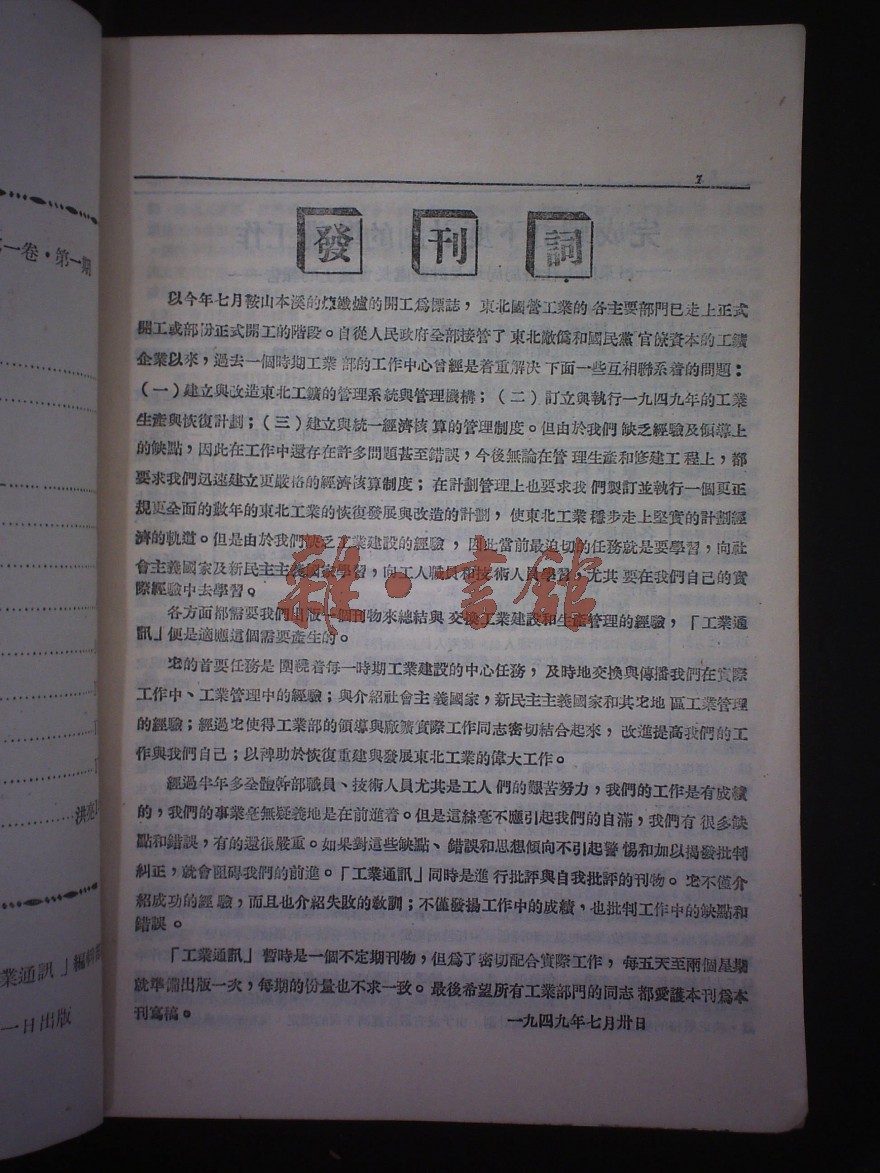 一卷·第一期
洪亮
業通訊」編輯部
一日出版
發刊詞
以今年七月鞍山本溪的煉鐵爐的開工爲標誌，東北國營工業的各主要部門已走上正式
開工或部份正式開工的階段。自從人民政府全部接管了東北敵僞和國民黨官僚資本的工鑛
企業以來，過去一個時期工業部的工作中心曾經是着重解決下面一些互相聯系着的問題：
（一）建立與改造東北工鑛的管理系統與管理機構；（二）訂立與執行一九四九年的工業
生產與恢復計劃；（三）建立與統一經濟核算的管理制度。但由於我們缺乏經驗及領導上
的缺點，因此在工作中還存在許多問題甚至錯誤，今後無論在管理生產和修建工程上，都
要求我們迅速建立更嚴格的經濟核算制度；在計劃管理上也要求我們製訂並執行一個更正
規更全面的數年的東北工業的恢復發展與改造的計劃，使東北工業穩步走上堅實的計劃經
濟的軌道。但是由於我們缺乏工業建設的經驗，因此當前最迫切的任務就是要學習，向社
會主義國家及新民主主義國家學習，向工人職員和技術人員學習，尤其要在我們自己的實
際經驗中去學習。
各方面都需要我們出版一個刊物來總結與交換工業建設和生產管理的經驗，「工業通
訊」便是適應這個需要產生的。
宅的首要任務是圍繞着每一時期工業建設的中心任務，及時地交換與傳播我們在實際
工作中、工業管理中的經驗；與介紹社會主義國家，新民主主義國家和其宅地區工業管理
的經驗；經過宅使得工業部的領導與廠鑛實際工作同志密切結合起來，改進提高我們的工
作與我們自己；以裨助於恢復重建與發展東北工業的偉大工作。
經過半年多全體幹部職員、技術人員尤其是工人們的艱苦努力，我們的工作是有成績
的，我們的事業毫無疑義地是在前進着。但是這絲毫不應引起我們的自滿，我們有很多缺
點和錯誤，有的還很嚴重。如果對這些缺點、錯誤和思想傾向不引起警惕和加以揭發批判
糾正，就會阻碍我們的前進。「工業通訊」同時是進行批評與自我批評的刊物。宅不僅介
紹成功的經驗，而且也介紹失敗的教訓；不僅發揚工作中的成績，也批判工作中的缺點和
錯誤。
「工業通訊」暫時是一個不定期刊物，但爲了密切配合實際工作，每五天至兩個星期
就準備出版一次，每期的份量也不求一致。最後希望所有工業部門的同志都愛護本刊爲本
刊寫稿。
一九四九年七月卅日
雜·書館